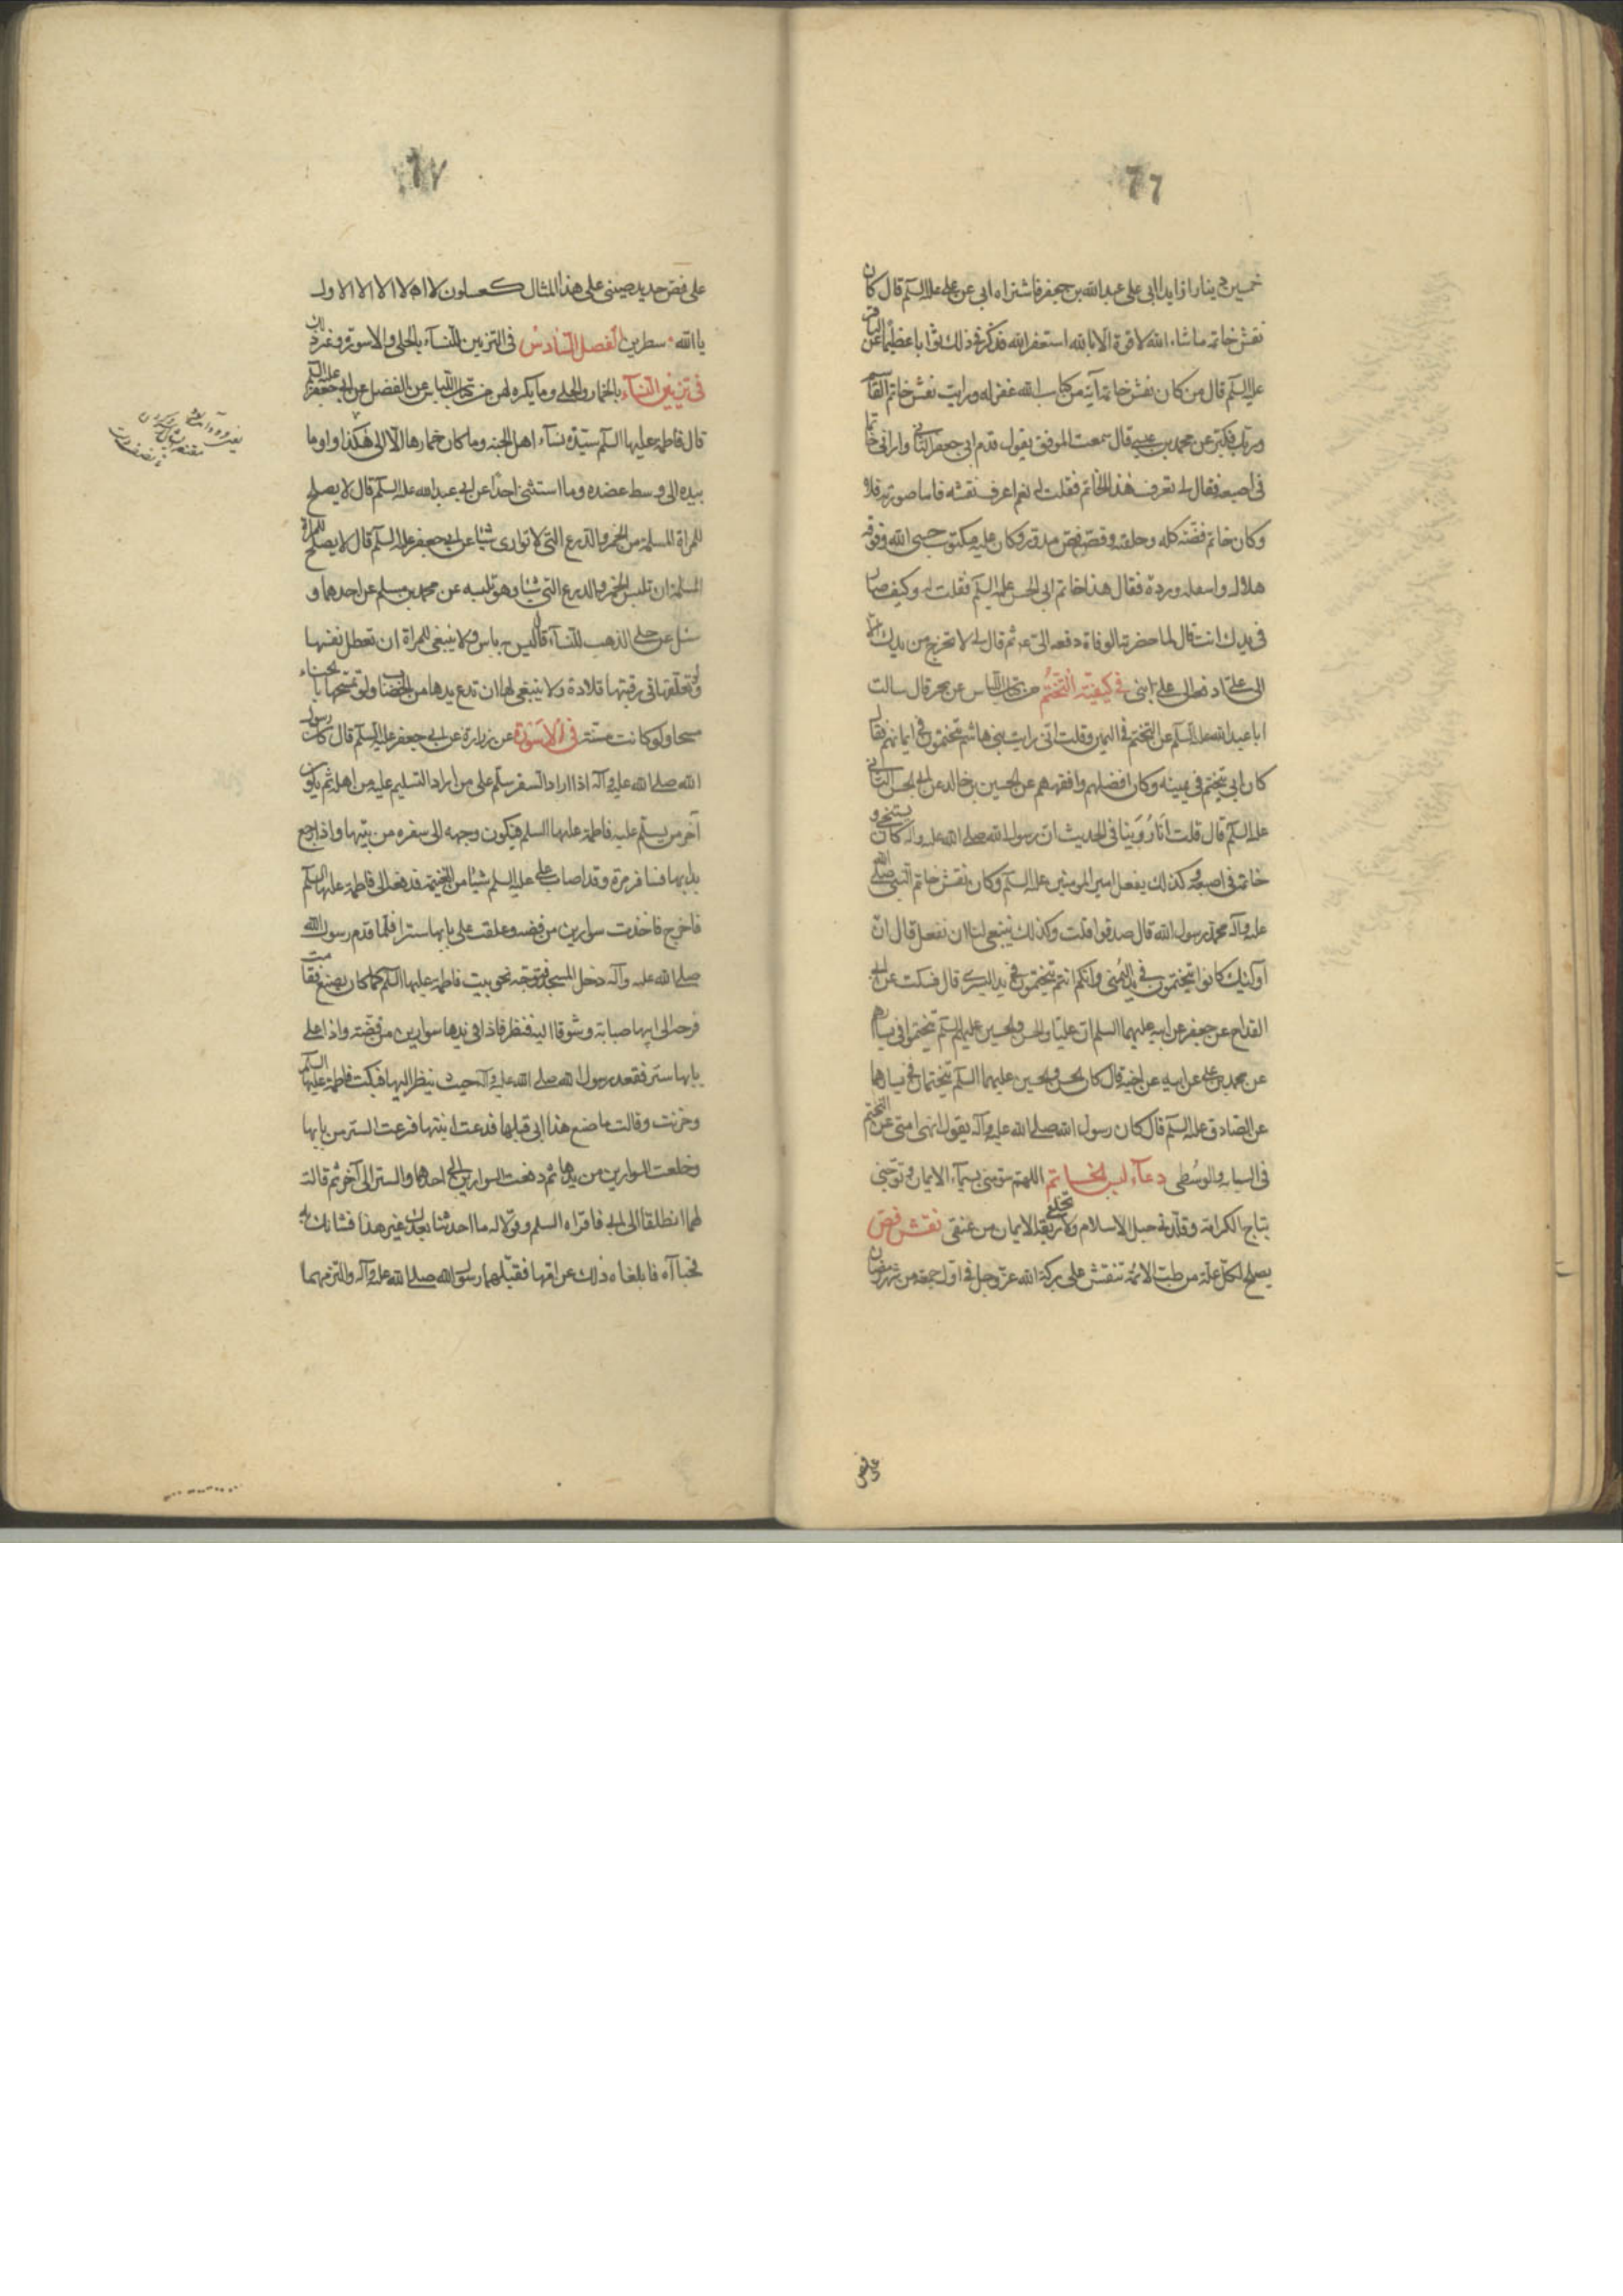 ٦٦
خمسين دينارا زايدا ابى على عبدالله بن جعفر فاشتراه ابى عن على عليه السلم قال كان
نقش خاتمه ماشاء الله لاقوة الا بالله استغفر الله فذكر فى ذلك ثوابا عظيما عن الباقر
عليه السلم قال من كان نقش خاتمه آية من كتاب الله غفر له ورايت نقش خاتم القآئم
عن محمد بن عيسى قال سمعت الموفق يقول قدم ابى جعفر الثانى وارانى خاتما
فى اصبعه فقال لى تعرف هذا الخاتم فقلت له نعم اعرف نقشه فاما صورته فلا
وكان خاتم فضّة كله وحلقته وفصّه فصّ مدوّر وكان عليه مكتوب حسبى الله وفوقه
هلال واسفله وردة فقال هذا خاتم ابى الحسن عليه السلم فقلت له وكيف صار
فى يدك انت قال لما حضرته الوفاة دفعه الىّ ثم قال لى لا تخرج من يدك الّا
الى علىّ ابنى فى كيفيّة التختّم من كتاب اللباس عن بحر قال سالت
اباعبدالله عليه السلم عن التختم فى اليمين وقلت انى رايت بنى هاشم يتختمون فى ايمانهم فقال
كان ابى يتختم فى يمينه وكان افضلهم وافقههم عن الحسين بن خالد عن ابى الحسن الثانى
عليه السلم قال قلت انا رُوِّينا فى الحديث ان رسول الله صلى الله عليه وآله كان يستنجى و
خاتمه فى اصبعه وكذلك يفعل امير المومنين عليه السلم وكان نقش خاتم النبى صلى الله
عليه وآله محمد رسول الله قال صدقوا قلت وكذلك ينبغى لنا ان نفعل قال ان
اولئك كانوا يتختمون فى يد اليمنى وانكم انتم تتختمون فى يد اليسرى قال فسكت عن ابى
القداح عن جعفر عن ابيه عليهما السلم ان عليا والحسن والحسين عليهم السلم تختموا فى يسارهم
عن محمد بن على عن ابيه عن اخيه قال كان الحسن والحسين عليهما السلم يتختمان فى يسارهما
عن الصادق عليه السلم قال كان رسول الله صلى الله عليه وآله يقول انهى امتى عن التختم
فى السبابة والوسُطى دعآء لبس الخاتم اللهم سوّمنى بسيمآء الايمان وتوّجنى
بتاج الكرامة وقلّدنى حبل الاسلام ولا تخلع ربقة الايمان من عنقى نقش فصّ
يصلح لكل علّة من طب الائمة تنقش على بركة الله عزوجل فى اول جمعة من شهر رمضان
على فص
٦٧
على فص حديد صينى على هذا المثال
يا الله سطرين الفصل السّادس فى التزيين للنسآء بالحلى والاسورة وغير ذلك
فى تزيين النسآء بالخمار والحلى وما يكره لهن من كتاب اللباس عن الفضل عن ابى جعفر عليه السلم
قال فاطمة عليها السلم سيّدة نسآء اهل الجنه وما كان خمارها الّا الى هكذا واوما
بيده الى وسط عضده وما استثنى احدًا عن ابى عبدالله عليه السلم قال لا يصلح
للمراة المسلمة من الخمر والدرع التى لا توارى شيئا عن ابى جعفر عليه السلم قال لا يصلح للمراة
المسلمة ان تلبس الخمر والدرع التى وهو تلبسه عن محمد بن مسلم عن احدهما و
سئل عن حلى الذهب للنسآء قال ليس به باس ولا ينبغى للمراة ان تعطل نفسها
ولو تعلّقها فى رقبتها قلادة ولا ينبغى لها ان تدع يدها من الخضاب ولو تمسّحها بالحناء
مسحا ولو كانت مسنّة فى الاَسْوِرَة عن زرارة عن ابى جعفر عليه السلم قال كان رسول
الله صلى الله عليه وآله اذا اراد السفر سلّم على من اراد التسليم عليه من اهله ثم يكون
آخر من يسلّم عليه فاطمة عليها السلم فيكون وجهه الى سفره من بيتها واذا رجع
بدا بها فسافر مرة وقد اصاب على عليه السلم شيئا من الغنيمة فدفعه الى فاطمة عليها السلم
فاخرج فاخذت سوارين من فضه وعلقت على بابها سترا فلما قدم رسول الله
صلى الله عليه وآله دخل المسجد فتوجه نحو بيت فاطمة عليها السلم كما كان يصنع فقامت
فرحه الى ابيها صبابة وشوقا اليه فنظر فاذا فى يدها سوارين من فضّة واذا على
بابها ستر فقعد رسول الله صلى الله عليه وآله حيث ينظر اليها فبكت فاطمة عليها السلم
وحزنت وقالت ما صنع هذا ابى قبلها فدعت ابنيها فنزعت الستر من بابها
وخلعت السوارين من يدها ثم دفعت السوارين الى احدهما والستر الى آخر ثم قالت
لهما انطلقا الى ابى فاقراه السلم وقولا له ما احدثنا بعدك غير هذا فشانك به
فجاآه فابلغاه ذلك عن امّها فقبّلهما رسول الله صلى الله عليه وآله والتزمهما